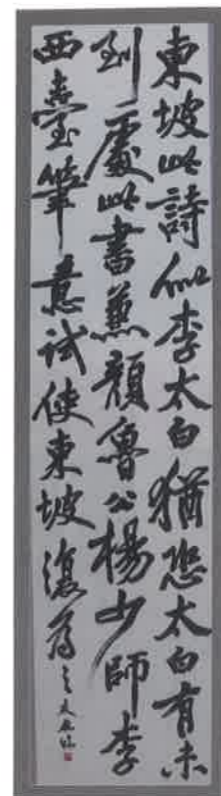 東坡此詩似李太白猶恐太白有未
到處此書兼顏魯公楊少師李
西臺筆意試使東坡復為之